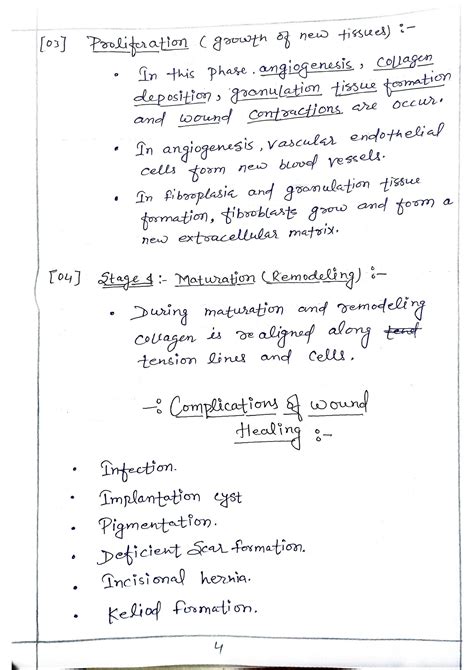 [03] Proliferation (growth of new tissues) :-
• In this phase. angiogenesis, collagen
deposition, granulation tissue formation
and wound contractions are occur.
• In angiogenesis, vascular endothelial
cells form new blood vessels.
• In fibroplasia and granulation tissue
formation, fibroblasts grow and form a
new extracellular matrix.
[04] Stage 4 :- Maturation (Remodeling) :-
• During maturation and remodeling
collagen is realigned along tend
tension lines and cells.
-: Complications of wound
Healing :-
• Infection.
• Implantation cyst
• Pigmentation.
• Deficient Scar formation.
• Incisional hernia.
• Keliod formation.
4